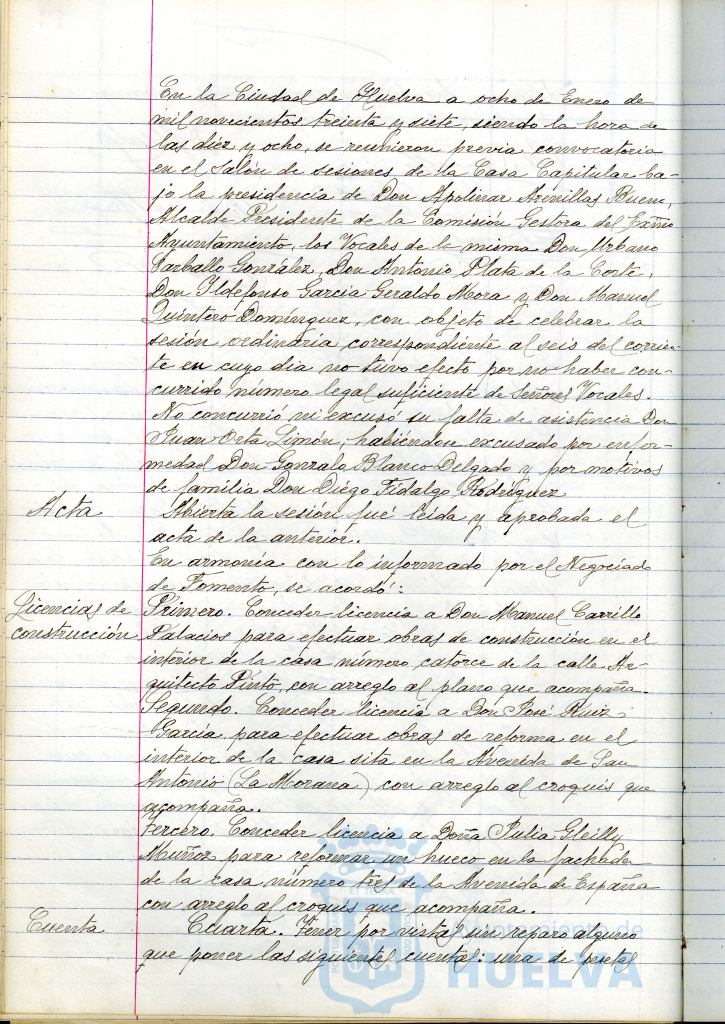 En la Ciudad de Huelva a ocho de Enero de
mil novecientos treinta y siete, siendo la hora de
las diez y ocho, se reunieron previa convocatoria
en el Salón de sesiones de la Casa Capitular ba-
jo la presidencia de Don Apolinar Arenillas Bueno,
Alcalde Presidente de la Comisión Gestora del Exmo
Ayuntamiento, los Vocales de la misma Don Urbano
Carballo González, Don Antonio Plata de la Corte,
Don Yldefonso Garcia Geraldo Mora y Don Manuel
Quintero Domínguez, con objeto de celebrar la
sesión ordinaria correspondiente al seis del corrien-
te en cuyo dia no tuvo efecto por no haber con-
currido número legal suficiente de Señores Vocales.
No concurrió ni excusó su falta de asistencia Don
Juan Orta Limón, habiendon excusado por enfer-
medad Don Gonzalo Blanco Delgado y por motivos
de familia Don Diego Fidalgo Rodríguez
Acta
Abierta la sesión fué leida y aprobada el
acta de la anterior.
En armonia con lo informado por el Negociado
de Fomento, se acordó:
Licencias de
construcción
Primero. Conceder licencia a Don Manuel Carrillo
Palacios para efectuar obras de construcción en el
interior de la casa número catorce de la calle Ar-
quitecto Pinto, con arreglo al plano que acompaña.
Segundo. Conceder licencia a Don José Ruiz
García para efectuar obras de reforma en el
interior de la casa sita en la Avenida de San
Antonio (La Morana) con arreglo al croquis que
acompaña.
Tercero. Conceder licencia a Doña Julia Gleilly
Muñoz para reformar un hueco en la fachada
de la casa número tres de la Avenida de España
con arreglo al croquis que acompaña.
Cuenta
Cuarta. Tener por vistas sin reparo alguno
que poner las siguientes cuentas: una de pesetas
Ayuntamiento de
HUELVA